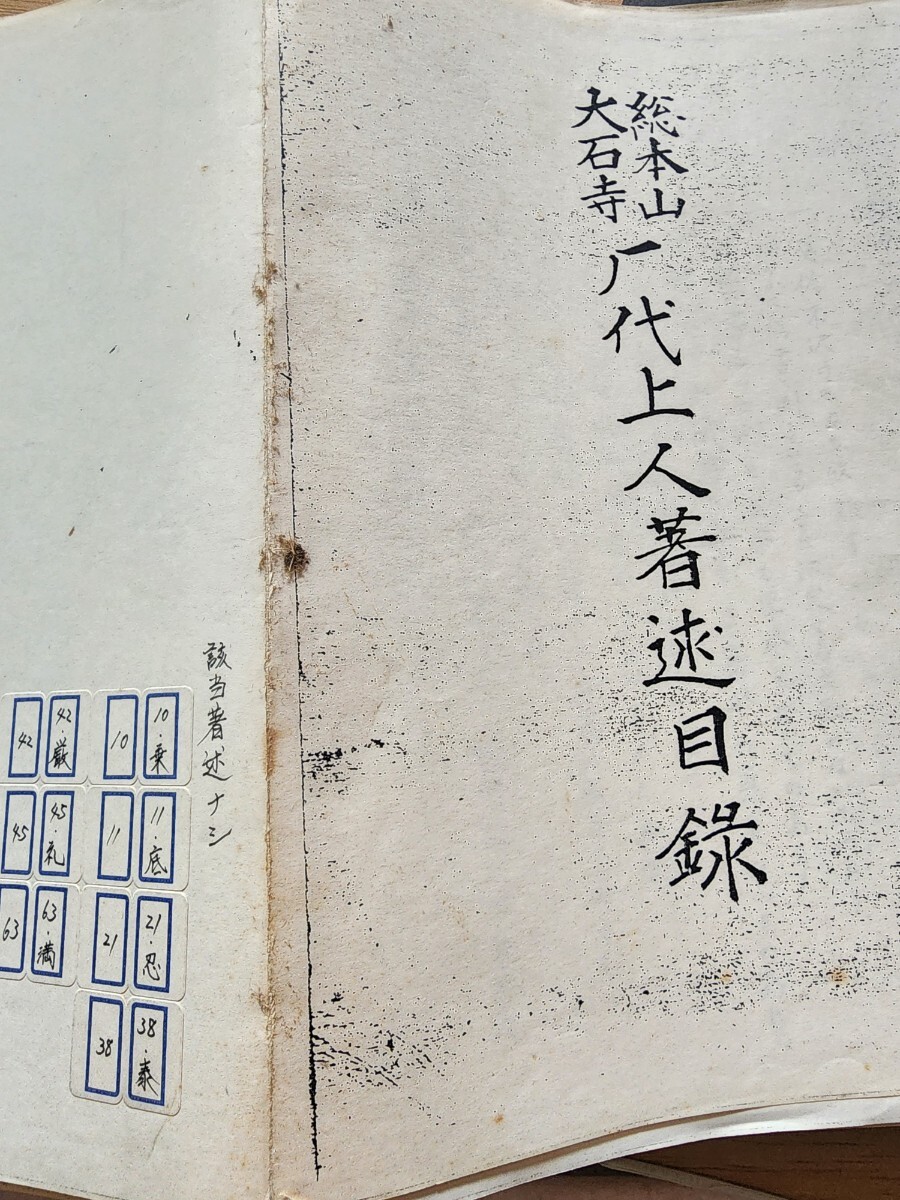 総本山
大石寺
厂代上人著述目録
該当著述ナシ
10・乗
10
42・厳
42
11・底
11
45・礼
45
21・忍
21
63・満
63
38・泰
38